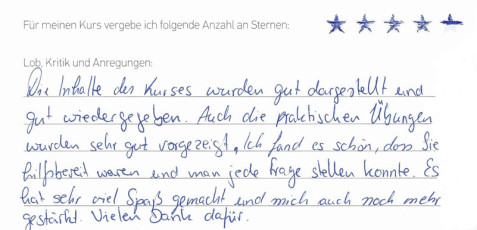 Für meinen Kurs vergebe ich folgende Anzahl an Sternen:
Lob, Kritik und Anregungen:
Die Inhalte des Kurses wurden gut dargestellt und
gut wiedergegeben. Auch die praktischen Übungen
wurden sehr gut vorgezeigt, Ich fand es schön, dass Sie
hilfsbereit waren und man jede Frage stellen konnte. Es
hat sehr viel Spaß gemacht und mich auch noch mehr
gestärkt. Vielen Dank dafür.